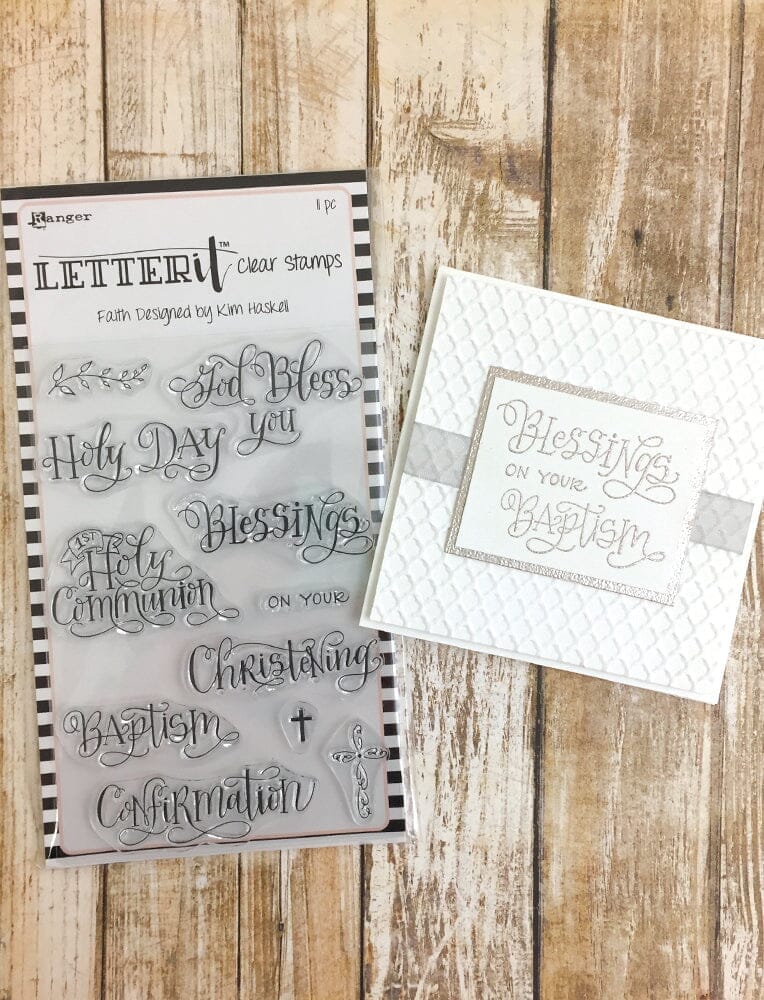 Ranger
11 pc
LETTERit™ Clear Stamps
Faith Designed by Kim Haskell
God Bless
you
Holy Day
Blessings
1st
Holy
Communion
on your
Christening
Baptism
Confirmation
Blessings
on your
Baptism